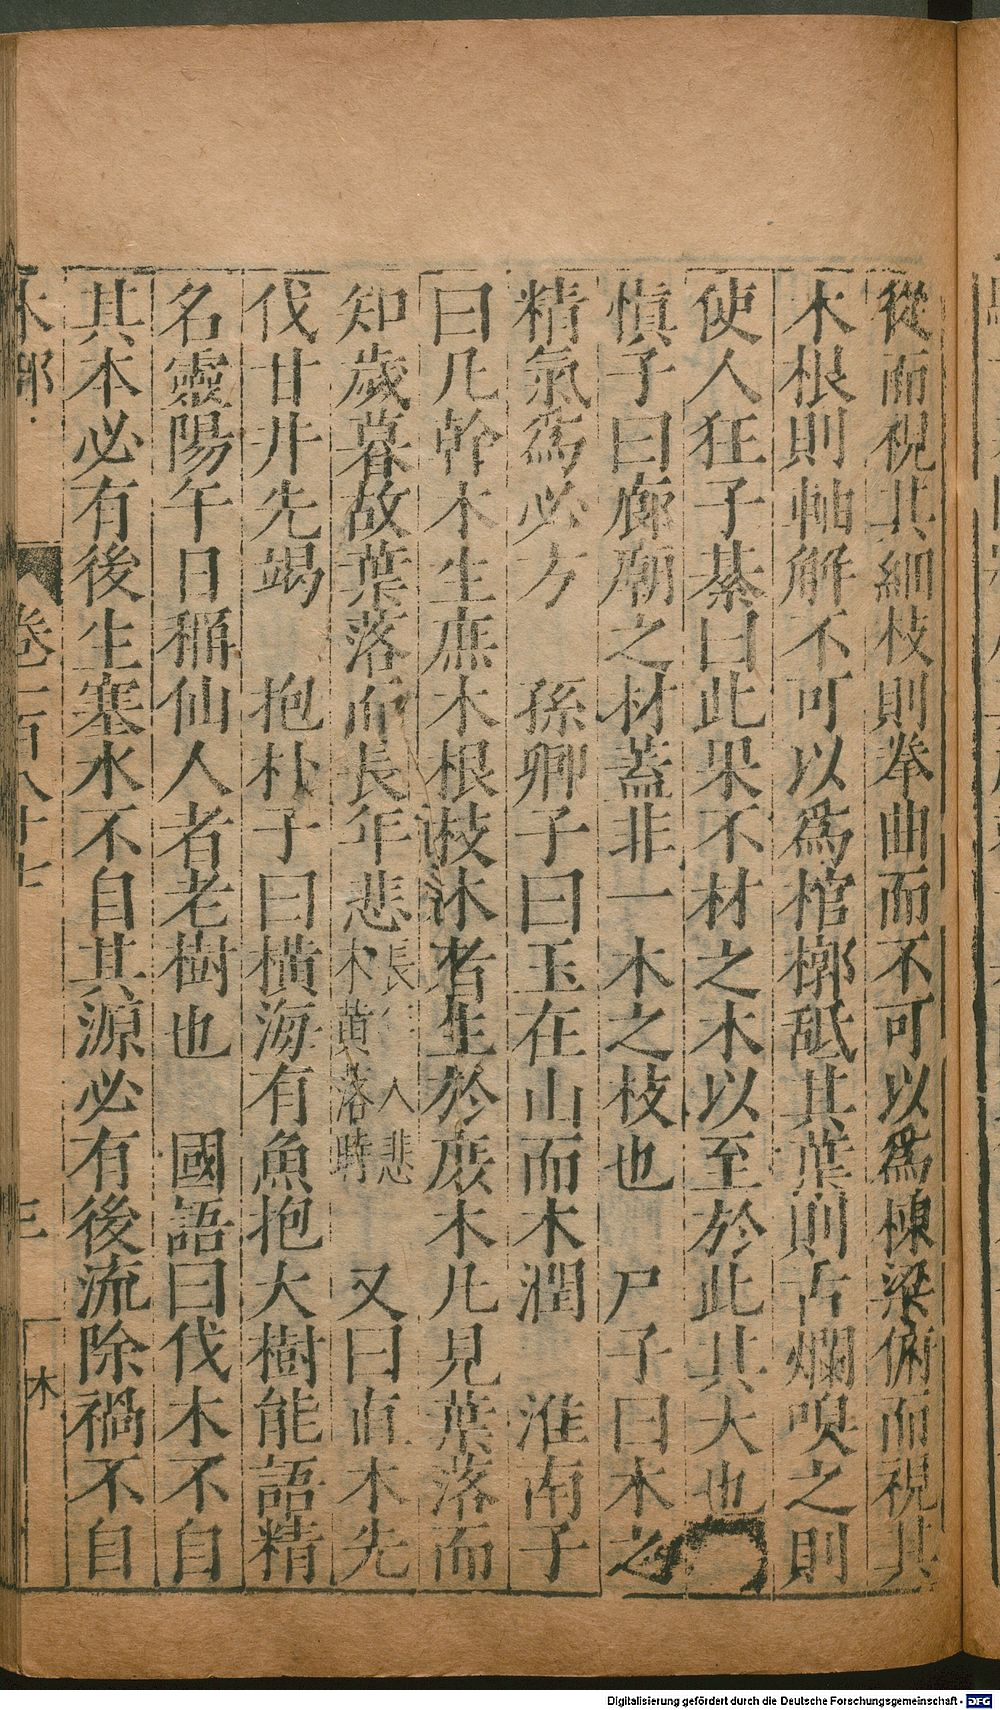 從而視其細枝則拳曲而不可以爲棟梁俯而視其
木根則軸解不可以爲棺槨舐其葉則舌爛嗅之則
使人狂子綦曰此果不材之木以至於此其大也
慎子曰廊廟之材蓋非一木之枝也　尸子曰木之
精氣爲必方　孫卿子曰玉在山而木潤　淮南子
曰凡幹木生庶木根枝沐者生於庶木凡見葉落而
知歲暮故葉落而長年悲長年人悲木黃落時　又曰直木先
伐甘井先竭　抱朴子曰橫海有魚抱大樹能語精
名靈陽午日稱仙人者老樹也　國語曰伐木不自
其本必有後生塞水不自其源必有後流除禍不自
木部　卷一百八十七　三　木
Digitalisierung gefördert durch die Deutsche Forschungsgemeinschaft - DFG